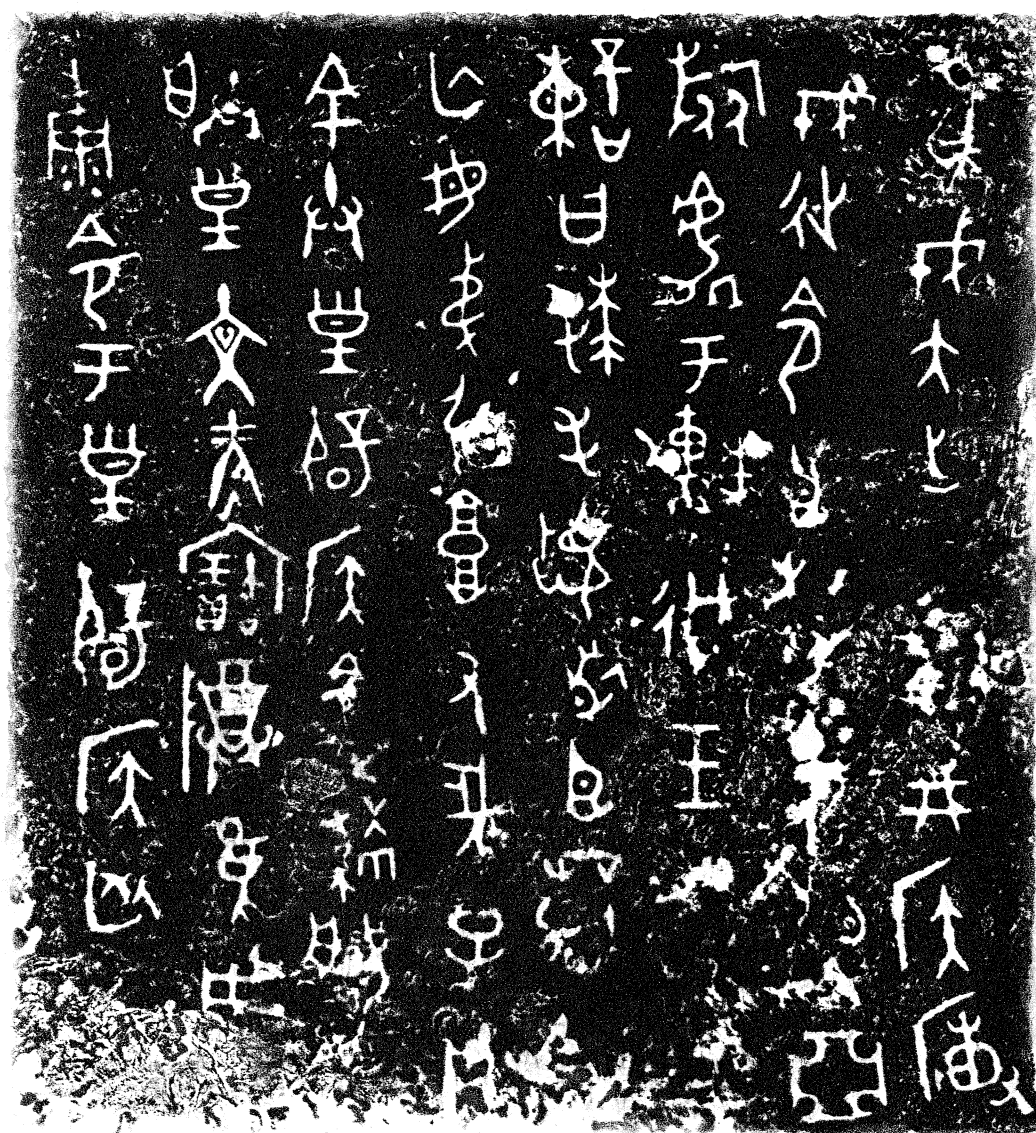 隹戎大出于軝井侯搏
戎延令臣諫亞
旅處于軝从王
諫曰拜手稽首臣諫
亡母弟引庸又長子
余灷皇辟侯令肄服
朕皇文考寶尊隹用
康令于皇辟侯匄